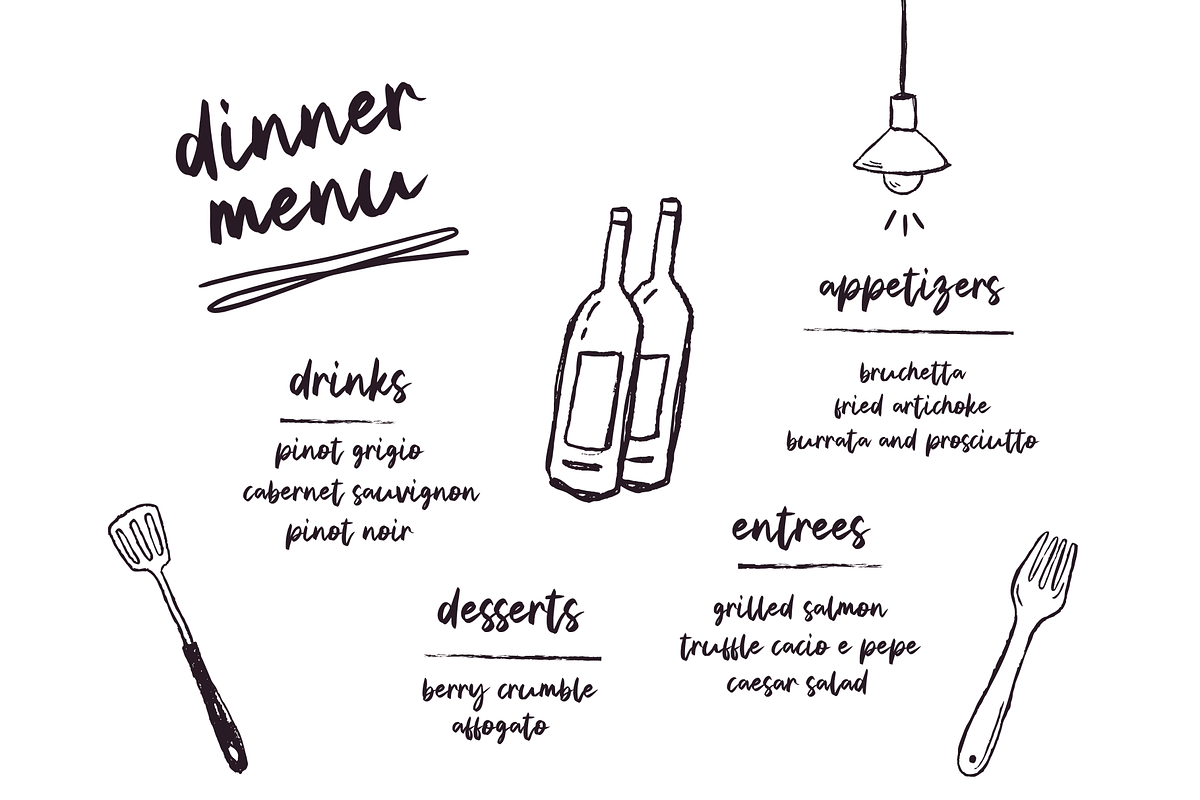 dinner
menu
drinks
pinot grigio
cabernet sauvignon
pinot noir
desserts
berry crumble
affogato
appetizers
bruchetta
fried artichoke
burrata and prosciutto
entrees
grilled salmon
truffle cacio e pepe
caesar salad